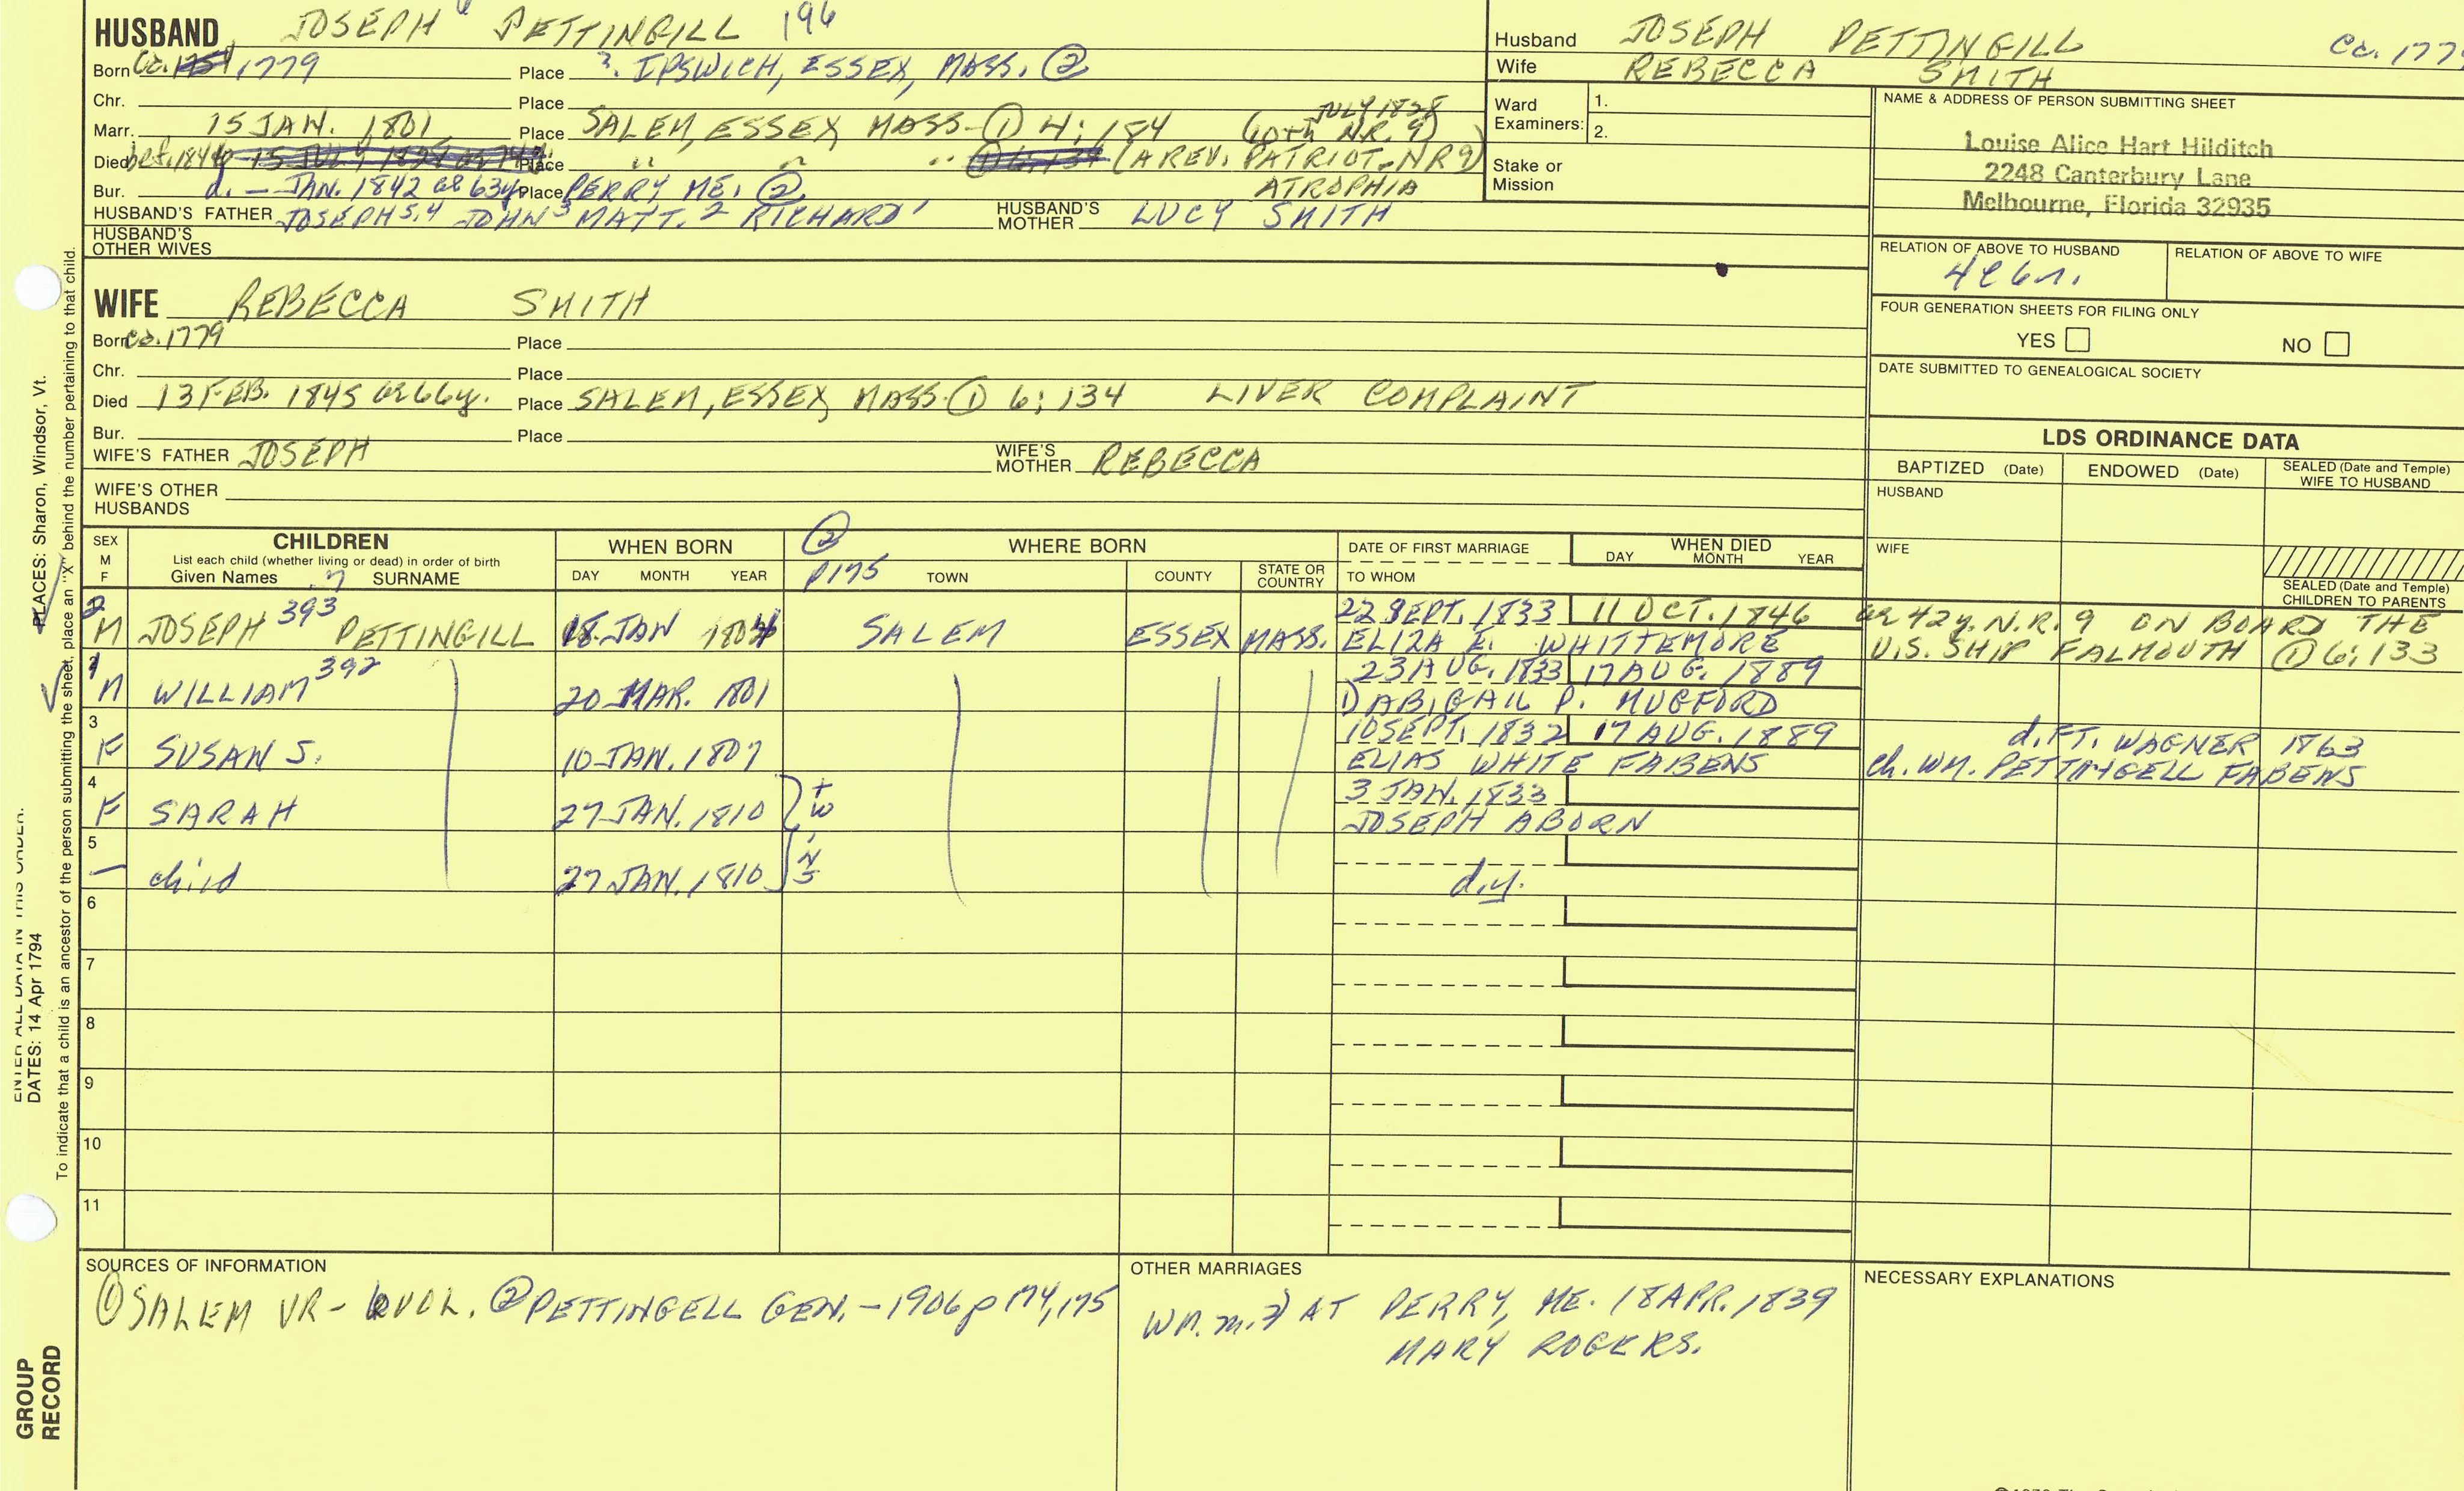 HUSBAND JOSEPH 6 PETTINGILL 196
Born Ca. 1779 Place ?. IPSWICH, ESSEX, MASS. ②
Chr. Place
Marr. 15 JAN. 1801 Place SALEM, ESSEX MASS. ① 4: 184 JULY 1828 (60th N.R. 9)
Died bef. 1844 15 JULY Place " " " ① 6:134 (A REV. PATRIOT. NR9)
Bur. d. - JAN. 1842 ae 63y Place PERRY ME. ② ATROPHIA
HUSBAND'S FATHER JOSEPH 5,4 JOHN 3 MATT. 2 RICHARD 1 HUSBAND'S MOTHER LUCY SMITH
HUSBAND'S OTHER WIVES
Husband JOSEPH PETTINGILL Ca. 177
Wife REBECCA SMITH
Ward Examiners: 1.
2.
Stake or Mission
NAME & ADDRESS OF PERSON SUBMITTING SHEET
Louise Alice Hart Hilditch
2248 Canterbury Lane
Melbourne, Florida 32935
RELATION OF ABOVE TO HUSBAND RELATION OF ABOVE TO WIFE
FOUR GENERATION SHEETS FOR FILING ONLY
YES NO
DATE SUBMITTED TO GENEALOGICAL SOCIETY
WIFE REBECCA SMITH
Born ca. 1779 Place
Chr. Place
Died 13 FEB. 1845 ae 66y. Place SALEM, ESSEX, MASS. ① 6: 134 LIVER COMPLAINT
Bur. Place
WIFE'S FATHER JOSEPH WIFE'S MOTHER REBECCA
WIFE'S OTHER HUSBANDS
LDS ORDINANCE DATA
BAPTIZED (Date) ENDOWED (Date) SEALED (Date and Temple) WIFE TO HUSBAND
HUSBAND
WIFE
SEALED (Date and Temple) CHILDREN TO PARENTS
SEX M F
CHILDREN
List each child (whether living or dead) in order of birth
Given Names 7 SURNAME
WHEN BORN
DAY MONTH YEAR
② p175
WHERE BORN
TOWN COUNTY STATE OR COUNTRY
DATE OF FIRST MARRIAGE
TO WHOM
WHEN DIED
DAY MONTH YEAR
2 M JOSEPH 393 PETTINGILL 18 JAN 1804 SALEM ESSEX MASS. 22 SEPT. 1833 11 OCT. 1846 ae 42y. N.R. 9 ON BOARD THE
ELIZA E. WHITTEMORE U.S. SHIP FALMOUTH ① 6: 133
1 M WILLIAM 392 20 MAR. 1801 23 AUG. 1833 17 AUG. 1889
1) ABIGAIL P. MUGFORD
3 F SUSAN S. 10 JAN. 1807 10 SEPT. 1832 17 AUG. 1889 d. FT. WAGNER 1863
ELIAS WHITE FABENS ch. WM. PETTINGELL FABENS
4 F SARAH 27 JAN. 1810 twins 3 JAN. 1833
JOSEPH ABORN
5 - child 27 JAN. 1810 d.y.
6
7
8
9
10
11
SOURCES OF INFORMATION
① SALEM VR - 6 VOL. ② PETTINGELL GEN. - 1906 p 174, 175
OTHER MARRIAGES
WM. m. 2) AT PERRY, ME. 18 APR. 1839
MARY ROGERS.
NECESSARY EXPLANATIONS
PLACES: Sharon, Windsor, Vt.
To indicate that a child is an ancestor of the person submitting the sheet, place an "X" behind the number pertaining to that child.
ENTER ALL DATA IN THIS ORDER:
DATES: 14 Apr 1794
GROUP
RECORD